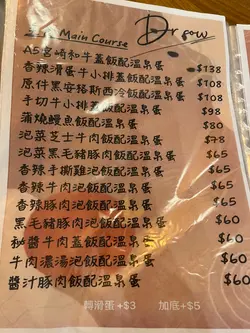 Main Course
A5宮崎和牛蓋飯配溫泉蛋 $138
香辣滑蛋牛小排蓋飯配溫泉蛋 $108
原件黑安格斯西冷飯配溫泉蛋 $108
手切牛小排蓋飯配溫泉蛋 $98
蒲燒鰻魚飯配溫泉蛋 $80
泡菜芝士牛肉飯配溫泉蛋 $78
泡菜黑毛豬豚肉飯配溫泉蛋 $65
香辣手撕雞泡飯配溫泉蛋 $65
香辣牛肉泡飯配溫泉蛋 $65
香辣豚肉泡飯配溫泉蛋 $65
黑毛豬豚肉泡飯配溫泉蛋 $60
秘醬牛肉蓋飯配溫泉蛋 $60
牛肉濃湯泡飯配溫泉蛋 $60
醬汁豚肉飯配溫泉蛋 $60
轉滑蛋 +$3 加底+$5